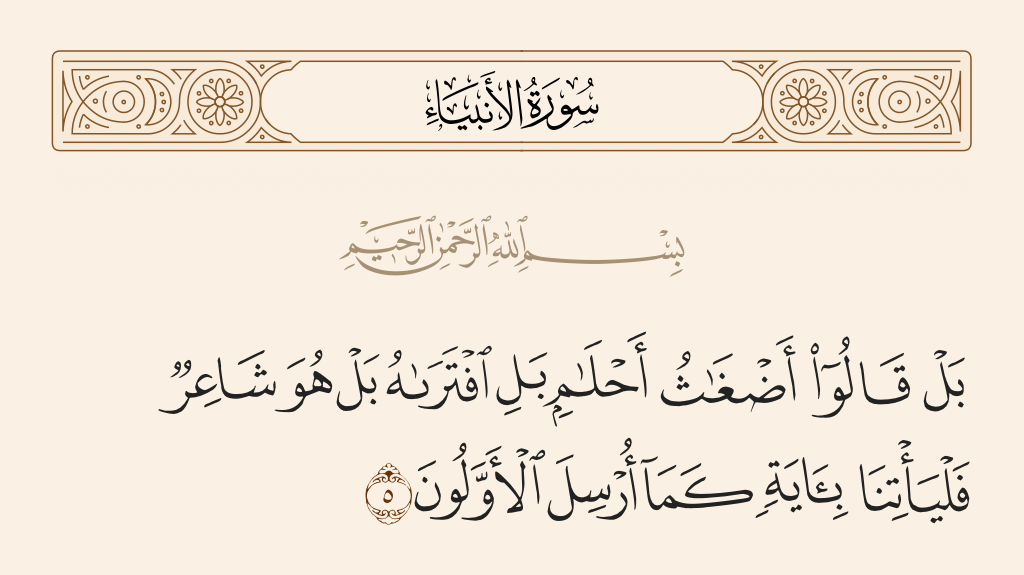 سُورَةُ الأَنبِيَاءِ
بِسْمِ ٱللَّهِ ٱلرَّحْمَٰنِ ٱلرَّحِيمِ
بَلْ قَالُوٓا۟ أَضْغَٰثُ أَحْلَٰمٍۭ بَلِ ٱفْتَرَىٰهُ بَلْ هُوَ شَاعِرٌ
فَلْيَأْتِنَا بِـَٔايَةٍ كَمَآ أُرْسِلَ ٱلْأَوَّلُونَ ٥